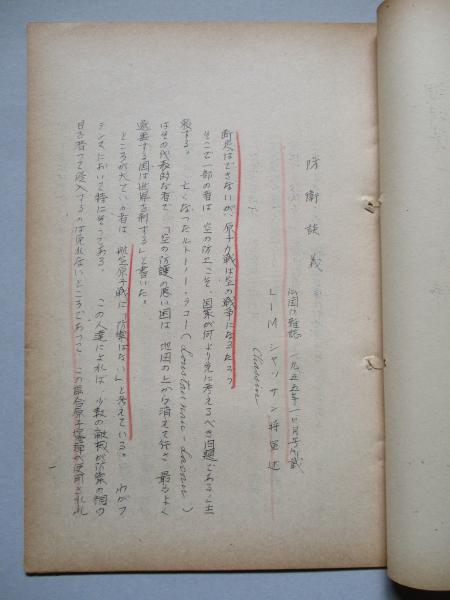 防衛談義
仏国防雑誌 一九五五年一〇月号所載
LIM シャッサン将軍述
Chassin
断定はできないが、原子力戦は空の戦争になるだろう
そこで一部の者は、空の防止こそ、国家が何より先に考えるべき問題であると主
張する。 亡くなったルトー
はその代表的な者で、「空の防護の悪い国は、地図の上から消えて行き、最もよく
退避する国は世界を制する」と書いた。
ところが大ていの者は、航空原子戦に「防禦はない」と考えている。 わがフ
ランスにおいて特にそうである。 この人達によれば、少数の敵機が防禦の網の
目を潜って侵入するのは免れないところであって、この場合原子爆弾が使用されれ